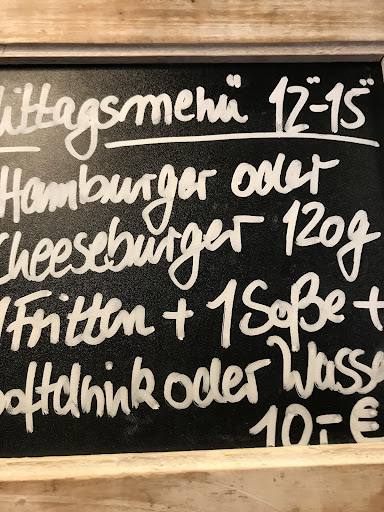 Mittagsmenü 12°°-15°°
Hamburger oder
Cheeseburger 120g
1 Fritten + 1 Soße +
Softdrink oder Wasser
10,- €